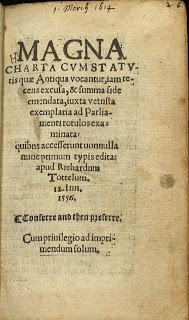 1. March 1614
2.6.
MAGNA
CHARTA CVM STATV-
tis quæ Antiqua vocantur, iam re
cens excusa, & summa fide
emendata, iuxta vetusta
exemplaria ad Parlia-
menti rotulos exa-
minata:
quibus accesserunt nonnulla
nunc primum typis edita:
apud Richardum
Tottelum.
12. Iun.
1556.
¶ Conferre and then preferre.
Cum priuilegio ad impri-
mendum solum.